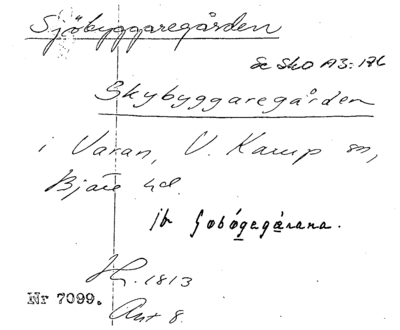 Sjöbyggaregården
se Sko A3:176
Skybyggaregården
i Varan, V. Karup sn,
Bjäre hd.
jr
1813
Nr 7099.
Ant 8.